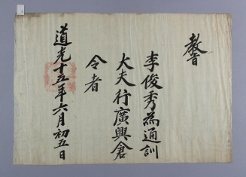 教旨
李俊秀為通訓
大夫行廣興倉
令者
道光十五年六月初五日